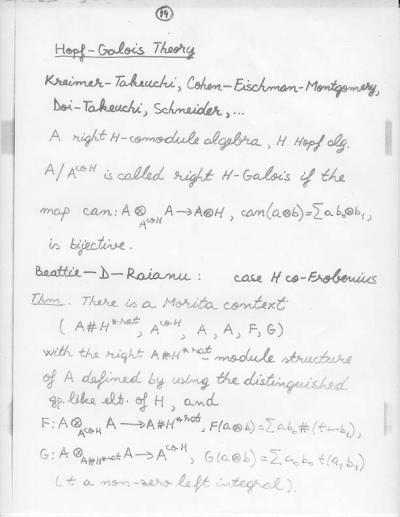 19
Hopf-Galois Theory
Kreimer-Takeuchi, Cohen-Fischman-Montgomery,
Doi-Takeuchi, Schneider, ...
A right H-comodule algebra, H Hopf alg.
A/A^{coH} is called right H-Galois if the
map can: A ⊗_{A^{coH}} A → A⊗H, can(a⊗b)=∑ab₀⊗b₁,
is bijective.
Beattie-D-Raianu: case H co-Frobenius
Thm. There is a Morita context
(A#H^{*rat}, A^{coH}, A, A, F, G)
with the right A#H^{*rat}-module structure
of A defined by using the distinguished
gp. like elt. of H, and
F: A⊗_{A^{coH}} A → A#H^{*rat}, F(a⊗b)=∑ab₀#(t↼b₁),
G: A⊗_{A#H^{*rat}} A → A^{coH}, G(a⊗b)=∑a₀b₀t(a₁b₁)
(t a non-zero left integral).